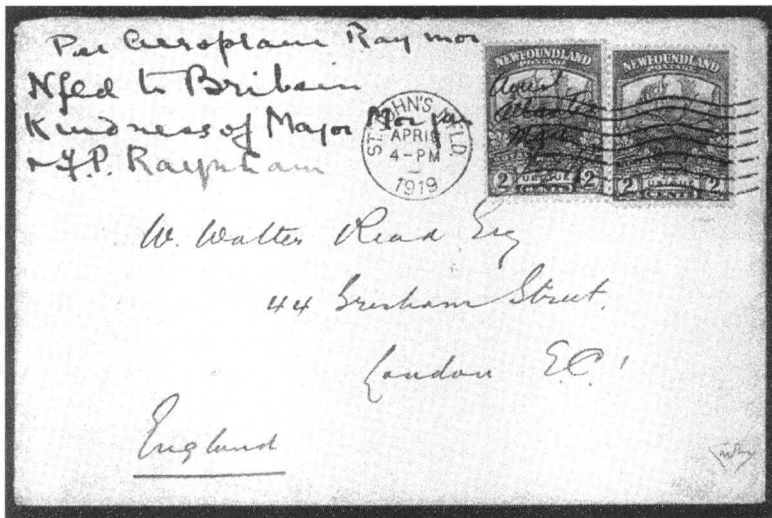 Per Aeroplane Raymor
Nfld to Britain
Kindness of Major Morgan
F.P. Raynham
ST. JOHN'S NFLD.
APR 19
4-PM
1919
NEWFOUNDLAND
POSTAGE
2 CENTS 2
NEWFOUNDLAND
POSTAGE
2 CENTS 2
W. Walter Read Esq
44 Gresham Street.
London E.C. 1
England